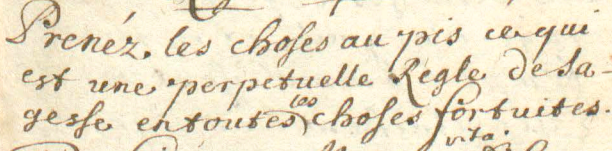 Prenéz les choses au pis ce qui
est une perpetuelle Regle de sa-
gesse en toutes les choses fortuites.
vita.